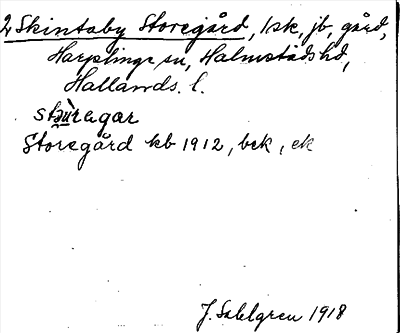 2 Skintaby Storegård, 1 sk, jb, gård,
Harplinge sn, Halmstads hd,
Hallands l.
Storegård kb 1912, bek, ek
J. Sahlgren 1918